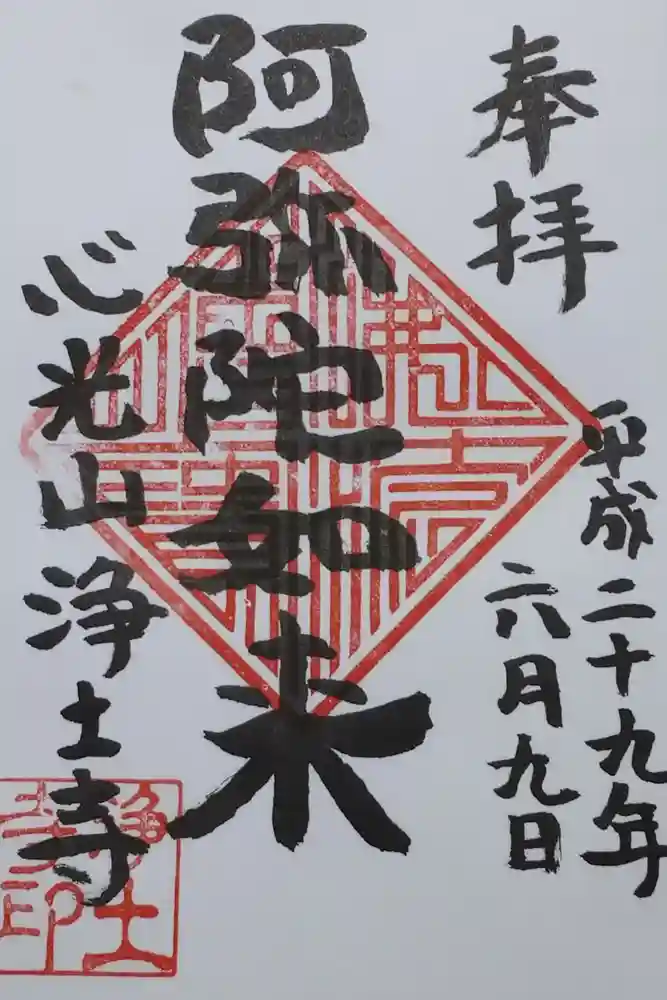 奉拝
平成二十九年
六月九日
阿弥陀如来
心光山浄土寺
浄土
寺印